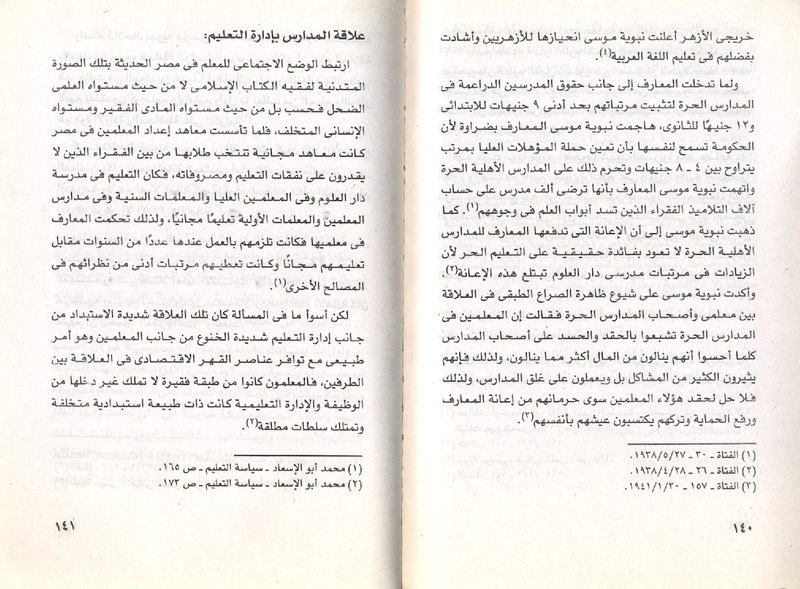 خريجى الأزهر أعلنت نبوية موسى انحيازها للأزهريين وأشادت
بفضلهم فى تعليم اللغة العربية(٤).
ولما تدخلت المعارف إلى جانب حقوق المدرسين الدراعمة فى
المدارس الحرة لتثبيت مرتباتهم بحد أدنى ٩ جنيهات للابتدائى
و١٢ جنيهًا للثانوى، هاجمت نبوية موسى المعارف بضراوة لأن
الحكومة تسمح لنفسها بأن تعين حملة المؤهلات العليا بمرتب
يتراوح بين ٤ ـ ٨ جنيهات وتحرم ذلك على المدارس الأهلية الحرة
واتهمت نبوية موسى المعارف بأنها ترضى ألف مدرس على حساب
آلاف التلاميذ الفقراء الذين تسد أبواب العلم فى وجوههم(١). كما
ذهبت نبوية موسى إلى أن الإعانة التى تدفعها المعارف للمدارس
الأهلية الحرة لا تعود بفائدة حقيقية على التعليم الحر لأن
الزيادات فى مرتبات مدرسى دار العلوم تبتلع هذه الإعانة(٢).
وأكدت نبوية موسى على شيوع ظاهرة الصراع الطبقى فى العلاقة
بين معلمى وأصحاب المدارس الحرة فقالت إن المعلمين فى
المدارس الحرة تشبعوا بالحقد والحسد على أصحاب المدارس
كلما أحسوا أنهم ينالون من المال أكثر مما ينالون، ولذلك فإنهم
يثيرون الكثير من المشاكل بل ويعملون على غلق المدارس، ولذلك
فلا حل لحقد هؤلاء المعلمين سوى حرمانهم من إعانة المعارف
ورفع الحماية وتركهم يكتسبون عيشهم بأنفسهم(٣).
(١) الفتاة ـ ٣٠ ـ ١٩٣٨/٥/٢٧.
(٢) الفتاة ـ ٢٦ ـ ١٩٣٨/٤/٢٨.
(٣) الفتاة ـ ١٥٧ ـ ١٩٤١/١/٣٠.
١٤٠
علاقة المدارس بإدارة التعليم:
ارتبط الوضع الاجتماعى للمعلم فى مصر الحديثة بتلك الصورة
المتدنية لفقيه الكتاب الإسلامى لا من حيث مستواه العلمى
الضحل فحسب بل من حيث مستواه المادى الفقير ومستواه
الإنسانى المتخلف، فلما تأسست معاهد إعداد المعلمين فى مصر
كانت معاهد مجانية تنتخب طلابها من بين الفقراء الذين لا
يقدرون على نفقات التعليم ومصروفاته، فكان التعليم فى مدرسة
دار العلوم وفى المعلمين العليا والمعلمات السنية وفى مدارس
المعلمين والمعلمات الأولية تعليمًا مجانيًا، ولذلك تحكمت المعارف
فى معلميها فكانت تلزمهم بالعمل عندها عددًا من السنوات مقابل
تعليمهم مجانًا وكانت تعطيهم مرتبات أدنى من نظرائهم فى
المصالح الأخرى(١).
لكن أسوأ ما فى المسألة كان تلك العلاقة شديدة الاستبداد من
جانب إدارة التعليم شديدة الخنوع من جانب المعلمين وهو أمر
طبيعى مع توافر عناصر القهر الاقتصادى فى العلاقة بين
الطرفين، فالمعلمون كانوا من طبقة فقيرة لا تملك غير دخلها من
الوظيفة والإدارة التعليمية كانت ذات طبيعة استبدادية متخلفة
وتمتلك سلطات مطلقة(٢).
(١) محمد أبو الإسعاد ـ سياسة التعليم ـ ص ١٦٥.
(٢) محمد أبو الإسعاد ـ سياسة التعليم ـ ص ١٧٣.
١٤١